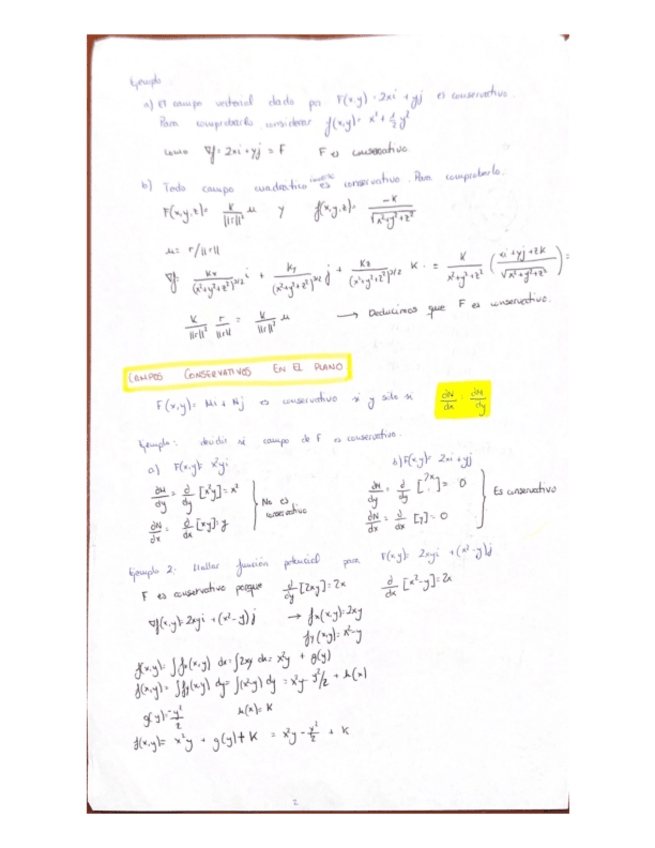 Ejemplo
a) El campo vectorial dado por F(x,y) = 2xi + yj es conservativo.
Para comprobarlo, considerar f(x,y) = x² + 1/2 y²
como ∇f = 2xi + yj = F F es conservativo.
b) Todo campo cuadrático inverso es conservativo. Para comprobarlo.
F(x,y,z) = K/||r||² u y f(x,y,z) = -K/√(x²+y²+z²)
u = r/||r||
∇f = Kx/(x²+y²+z²)^3/2 i + Ky/(x²+y²+z²)^3/2 j + Kz/(x²+y²+z²)^3/2 K = K/(x²+y²+z²) (xi + yj + zK / √(x²+y²+z²)) =
K/||r||² r/||r|| = K/||r||² u → Deducimos que F es conservativo.
CAMPOS CONSERVATIVOS EN EL PLANO
F(x,y) = Mi + Nj es conservativo si y sólo si ∂N/∂x = ∂M/∂y
Ejemplo: decidir si campo de F es conservativo.
a) F(x,y) = x²yi b) F(x,y) = 2xi + yj
∂M/∂y = ∂/∂y [x²y] = x² ∂M/∂y = ∂/∂y [2x] = 0
No es conservativo Es conservativo
∂N/∂x = ∂/∂x [xy] = y ∂N/∂x = ∂/∂x [y] = 0
Ejemplo 2: Hallar función potencial para F(x,y) = 2xyi + (x²-y)j
F es conservativo porque ∂/∂y [2xy] = 2x ∂/∂x [x²-y] = 2x
∇f(x,y) = 2xyi + (x²-y)j → fx(x,y) = 2xy
fy(x,y) = x²-y
f(x,y) = ∫fx(x,y) dx = ∫2xy dx = x²y + g(y)
f(x,y) = ∫fy(x,y) dy = ∫(x²-y) dy = x²y - y²/2 + h(x)
g(y) = -y²/2 h(x) = K
f(x,y) = x²y + g(y) + K = x²y - x²/2 + K
2